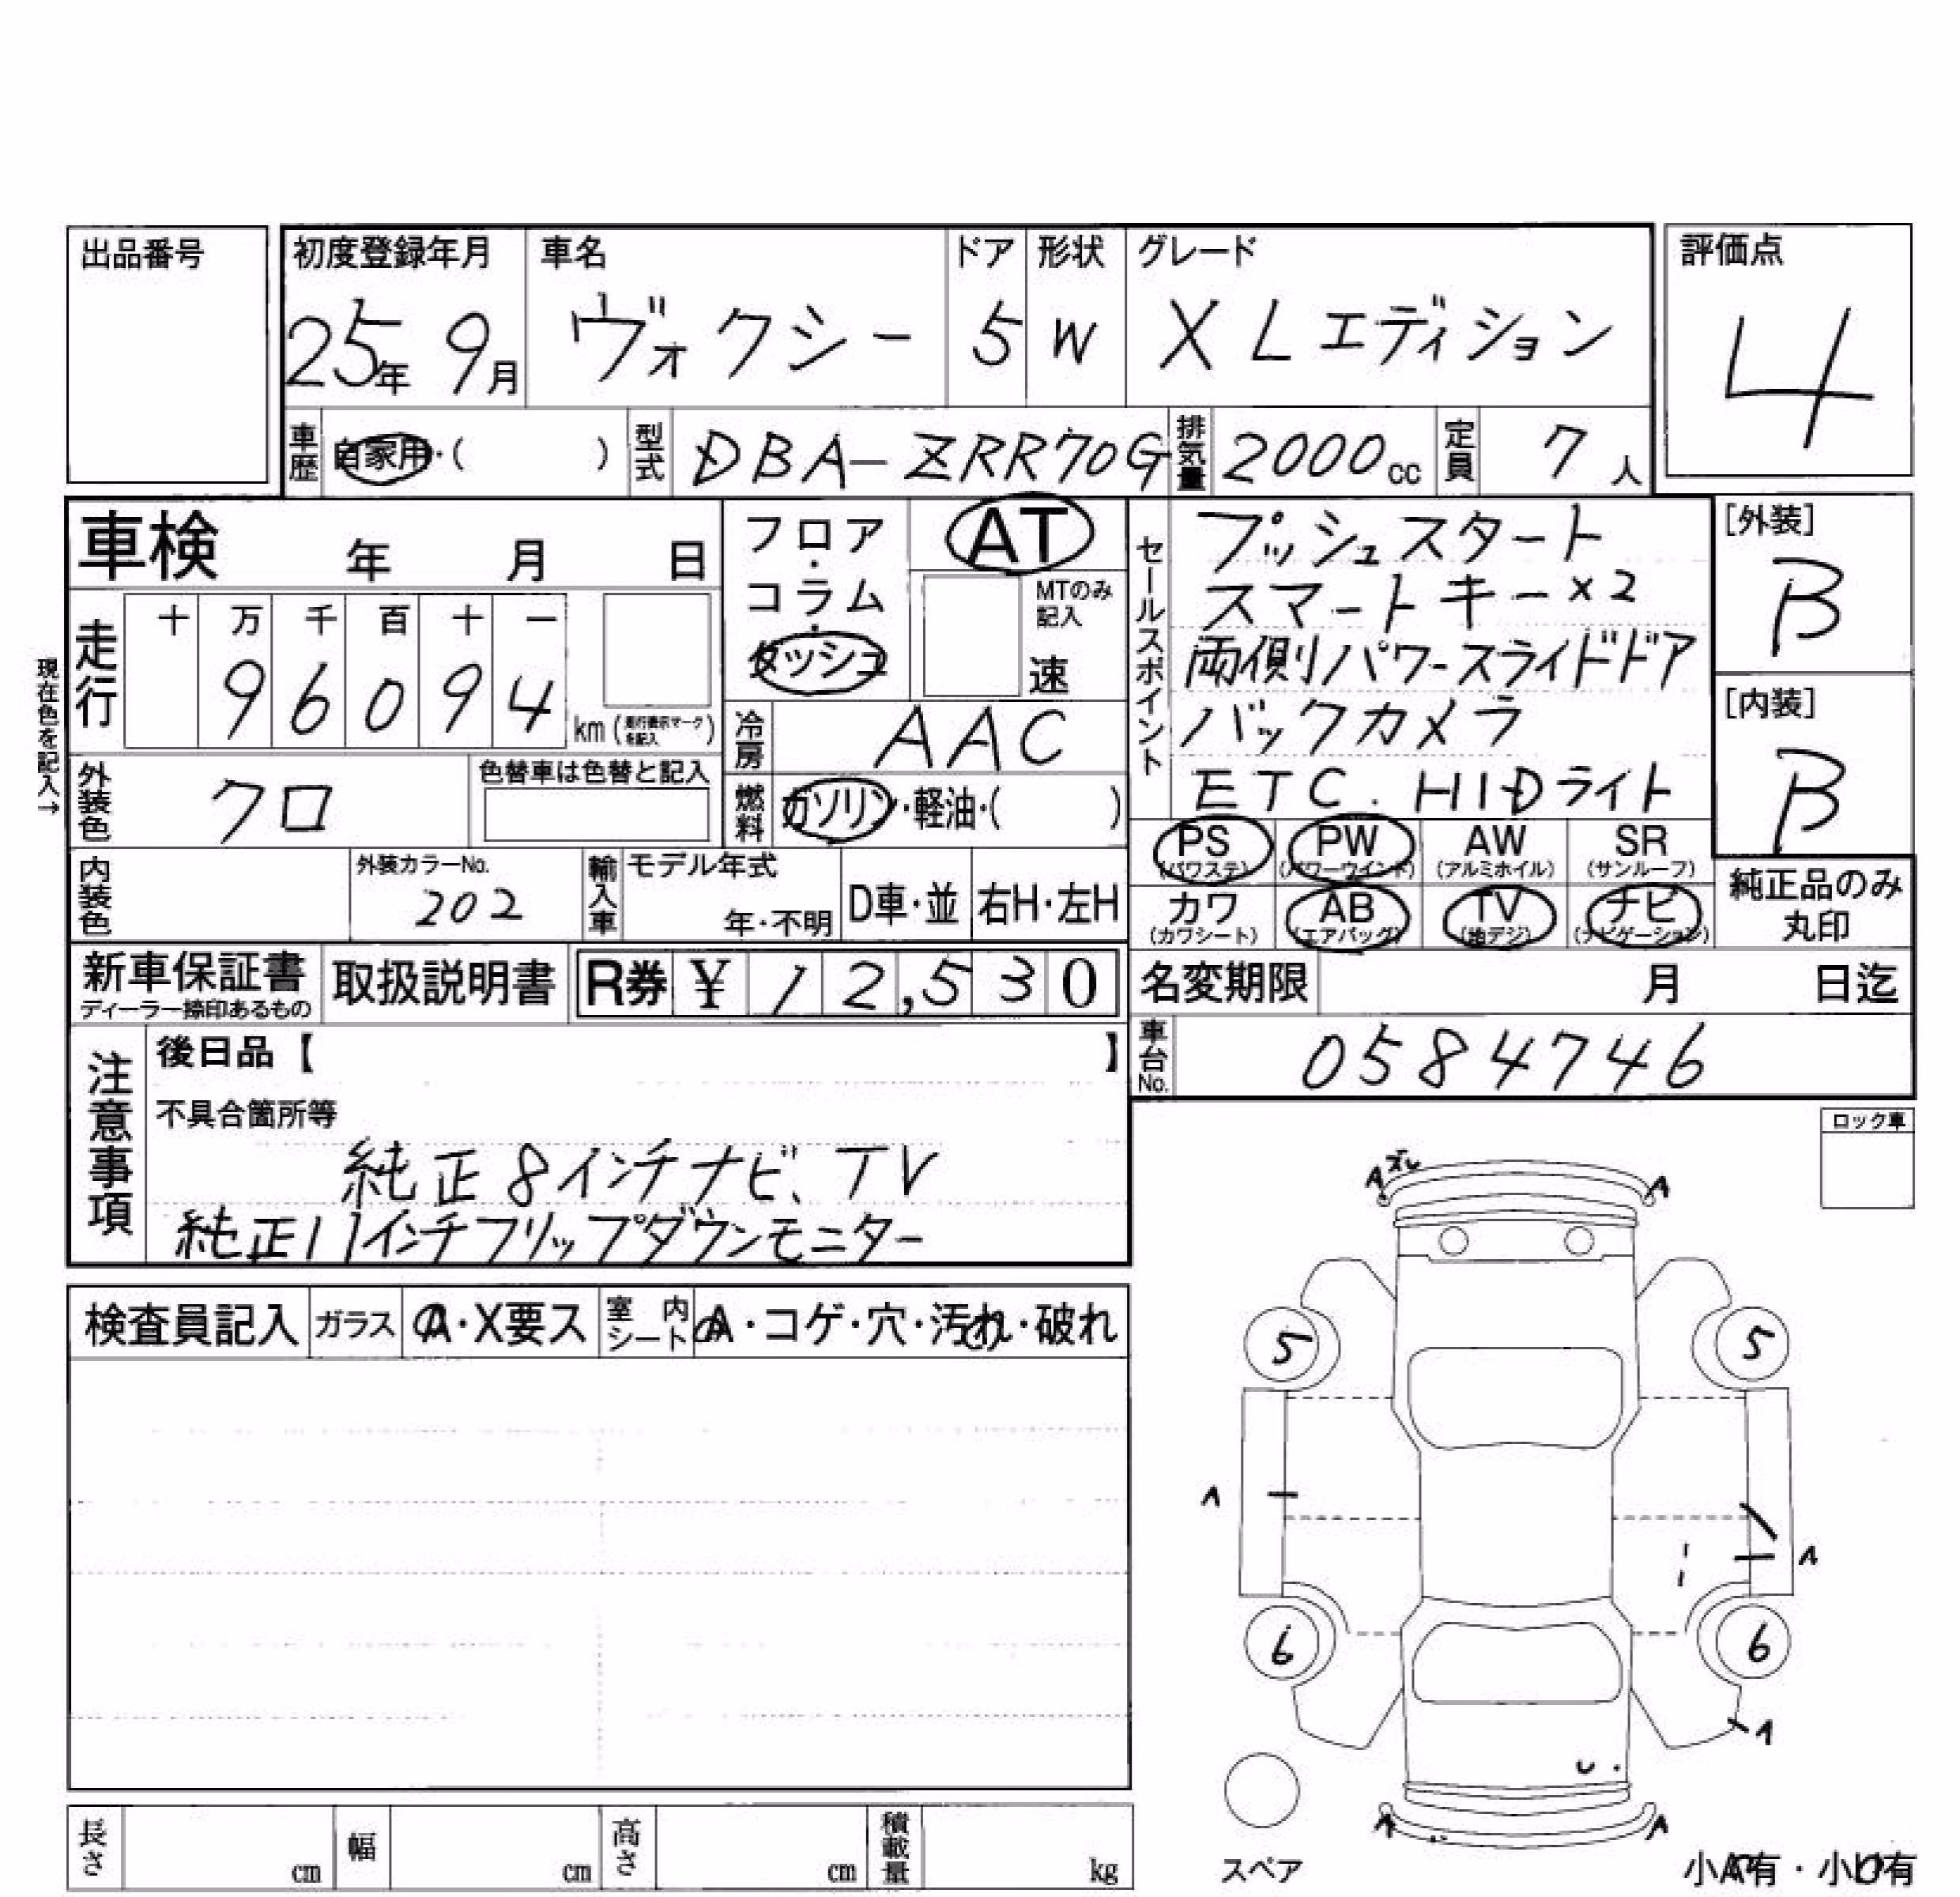 出品番号
初度登録年月 車名 ドア 形状 グレード 評価点
25年 9月 ヴォクシー 5 W X Lエディション 4
車歴 自家用・( ) 型式 DBA-ZRR70G 排気量 2000cc 定員 7人
車検 年 月 日
フロア・コラム・ダッシュ AT
MTのみ記入 速
セールスポイント
プッシュスタート
スマートキー×2
両側パワースライドドア
バックカメラ
ETC. HIDライト
[外装] B
[内装] B
現在色を記入→
走行 十 万 千 百 十 一
9 6 0 9 4 km (走行表示マークを記入)
冷房 AAC
外装色 クロ 色替車は色替と記入
燃料 ガソリン・軽油・( )
PS (パワステ) PW (パワーウインド) AW (アルミホイル) SR (サンルーフ)
カワ (カワシート) AB (エアバッグ) TV (地デジ) ナビ (ナビゲーション)
純正品のみ丸印
内装色 外装カラーNo. 202 輸入車 モデル年式 年・不明 D車・並 右H・左H
新車保証書 ディーラー捺印あるもの 取扱説明書 R券 ¥ 12,530
名変期限 月 日迄
車台No. 0584746
注意事項
後日品【 】
不具合箇所等
純正8インチナビ、TV
純正11インチフリップダウンモニター
ロック車
検査員記入 ガラス A・X要ス 室内シート A・コゲ・穴・汚れ・破れ
A スレ A
5 5
A A
6 6
A
U
A A
スペア
小A有・小U有
長さ cm 幅 cm 高さ cm 積載量 kg